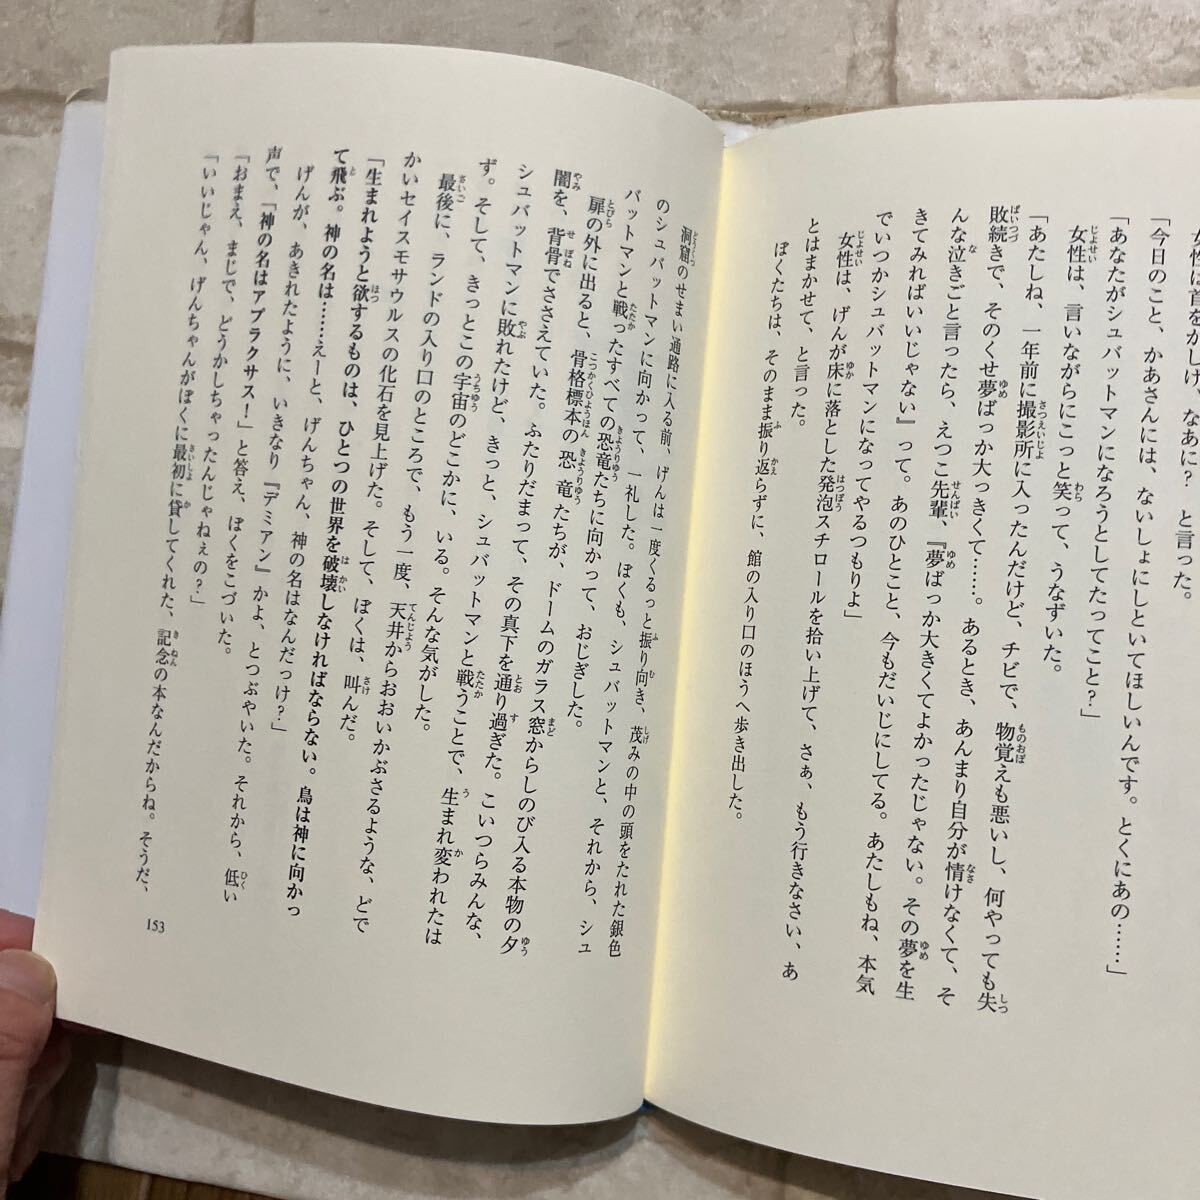 女性は首をかしげ、なあに？ と言った。
「今日のこと、かあさんには、ないしょにしといてほしいんです。とくにあの……」
「あなたがシュバットマンになろうとしてたってこと？」
女性は、言いながらにこっと笑って、うなずいた。
「あたしね、一年前に撮影所に入ったんだけど、チビで、物覚えも悪いし、何やっても失
敗続きで、そのくせ夢ばっか大っきくて……。あるとき、あんまり自分が情けなくて、そ
んな泣きごと言ったら、えつこ先輩、『夢ばっか大きくてよかったじゃない。その夢を生
きてみればいいじゃない』って。あのひとこと、今もだいじにしてる。あたしもね、本気
でいつかシュバットマンになってやるつもりよ」
女性は、げんが床に落とした発泡スチロールを拾い上げて、さぁ、もう行きなさい、あ
とはまかせて、と言った。
ぼくたちは、そのまま振り返らずに、館の入り口のほうへ歩き出した。
洞窟のせまい通路に入る前、げんは一度くるっと振り向き、茂みの中の頭をたれた銀色
のシュバットマンに向かって、一礼した。ぼくも、シュバットマンと、それから、シュ
バットマンと戦ったすべての恐竜たちに向かって、おじぎした。
扉の外に出ると、骨格標本の恐竜たちが、ドームのガラス窓からしのび入る本物の夕
闇を、背骨でささえていた。ふたりだまって、その真下を通り過ぎた。こいつらみんな、
シュバットマンに敗れたけど、きっと、シュバットマンと戦うことで、生まれ変われたは
ず。そして、きっとこの宇宙のどこかに、いる。そんな気がした。
最後に、ランドの入り口のところで、もう一度、天井からおおいかぶさるような、どで
かいセイスモサウルスの化石を見上げた。そして、ぼくは、叫んだ。
「生まれようと欲するものは、ひとつの世界を破壊しなければならない。鳥は神に向かっ
て飛ぶ。神の名は……えーと、げんちゃん、神の名はなんだっけ？」
げんが、あきれたように、いきなり『デミアン』かよ、とつぶやいた。それから、低い
声で、「神の名はアプラクサス！」と答え、ぼくをこづいた。
「おまえ、まじで、どうかしちゃったんじゃねぇの？」
「いいじゃん、げんちゃんがぼくに最初に貸してくれた、記念の本なんだからね。そうだ、
153